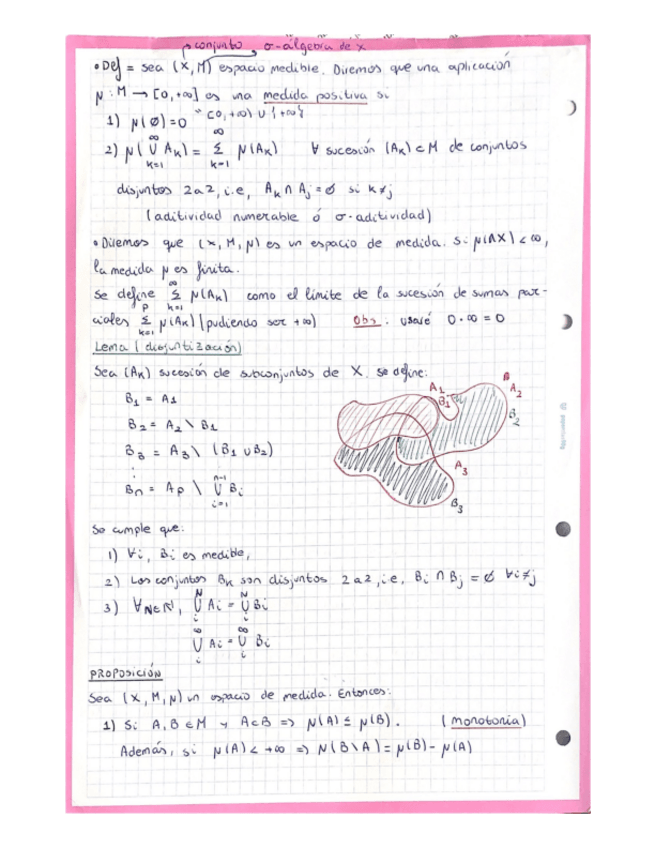 conjunto, σ-álgebra de X
• Def = sea (X, M) espacio medible. Diremos que una aplicación
μ: M → [0,+∞] es una medida positiva si
1) μ(∅)=0 " [0,+∞) ∪ {+∞}
2) μ(∞∪k=1 Ak) = ∞Σk=1 μ(Ak) ∀ sucesión (Ak) ⊂ M de conjuntos
disjuntos 2a2, i.e, Ak ∩ Aj = ∅ si k≠j
(aditividad numerable ó σ-aditividad)
• Diremos que (X, M, μ) es un espacio de medida. Si μ(X) < ∞,
la medida μ es finita.
Se define ∞Σk=1 μ(Ak) como el límite de la sucesión de sumas par-
ciales pΣk=1 μ(Ak) (pudiendo ser +∞) Obs. usaré 0·∞ = 0
Lema (disjuntización)
Sea (Ak) sucesión de subconjuntos de X. se define:
B1 = A1
B2 = A2 \ B1
B3 = A3 \ (B1 ∪ B2)
⋮
Bn = Ap \ n-1∪i=1 Bi
A1
B1
B
A2
B2
A3
B3
Se cumple que:
1) ∀i, Bi es medible,
2) Los conjuntos Bk son disjuntos 2a2, i.e, Bi ∩ Bj = ∅ ∀i≠j
3) ∀N∈ℕ, N∪i Ai = N∪i Bi
∞∪i Ai = ∞∪i Bi
PROPOSICIÓN
Sea (X, M, μ) un espacio de medida. Entonces:
1) Si A, B ∈ M y A⊂B => μ(A) ≤ μ(B). (monotonía)
Además, si μ(A) < +∞ => μ(B\A) = μ(B) - μ(A)